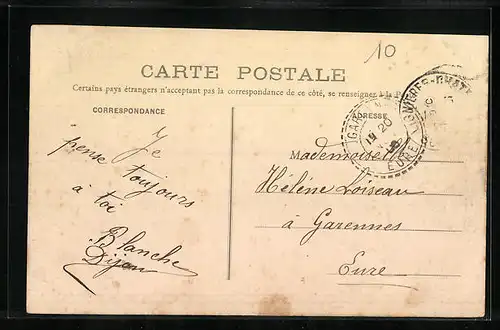 10
CARTE POSTALE
Certains pays étrangers n'acceptent pas la correspondance de ce côté, se renseigner à la
CORRESPONDANCE
ADRESSE
Je
pense toujours
à toi
Blanche
Dijon
Mademoiselle
Hélène Loiseau
à Garennes
Eure
20
EURE